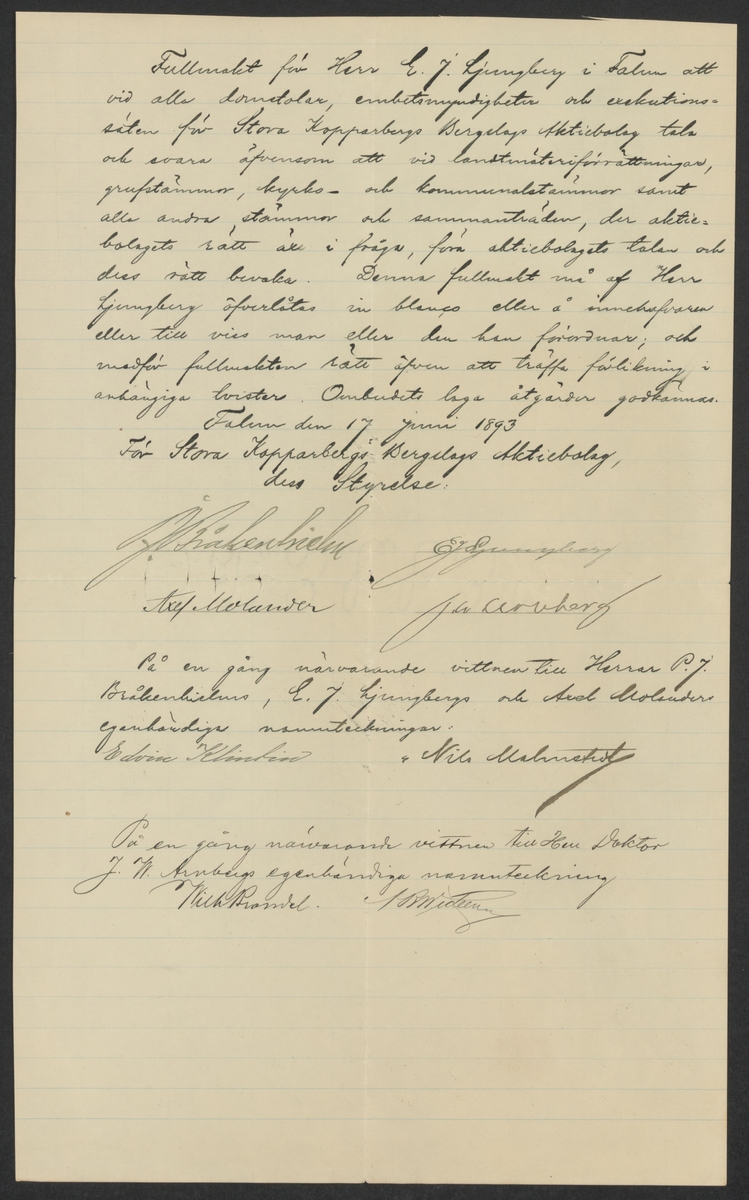 Fullmakt för Herr E. J. Ljungberg i Falun att
vid alla domstolar, embetsmyndigheter och exekutions=
säten för Stora Kopparbergs Bergslags Aktiebolag tala
och svara äfvensom att vid landtmäteriförrättningar,
grufstämmor, kyrko- och kommunalstämmor samt
alla andra stämmor och sammanträden, der aktie=
bolagets rätt äre i fråga, föra aktiebolagets talan och
dess rätt bevaka. Denna fullmakt må af Herr
Ljungberg öfverlåtas in blanco eller å innehafvaren
eller till viss man eller den han förordnar; och
medför fullmakten rätt äfven att träffa förlikning i
anhängiga tvister. Ombudets laga åtgärder godkännas.
Falun den 17 juni 1893
För Stora Kopparbergs Bergslags Aktiebolag,
dess Styrelse:
PJ Bråkenhielm EJ Ljungberg
Axel Molander J W Arnberg
På en gång närvarande vittnen till Herrar P. J.
Bråkenhielms, E. J. Ljungbergs och Axel Molanders
egenhändiga namnteckningar:
Edvin Klintin Nils Malmstedt
På en gång närvarande vittnen till Herr Doktor
J. W. Arnbergs egenhändiga namnteckning
Wilh Brandel.